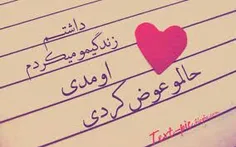 داشتم
زندگیمو میکردم
اومدی
حالمو عوض کردی